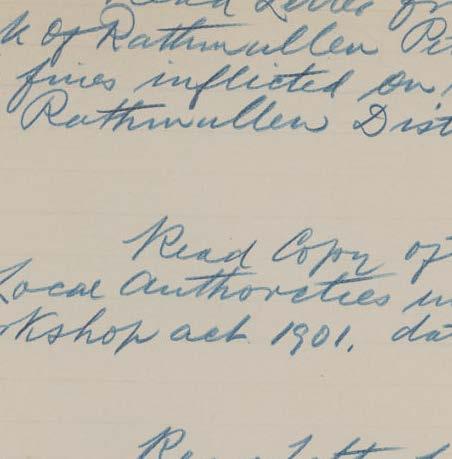 Read Letter fr
k of Rathmullen Pe
fines inflicted on
Rathmullen Dist
Read Copy of
Local Authoreties un
rkshop act 1901. dat
Read Lett